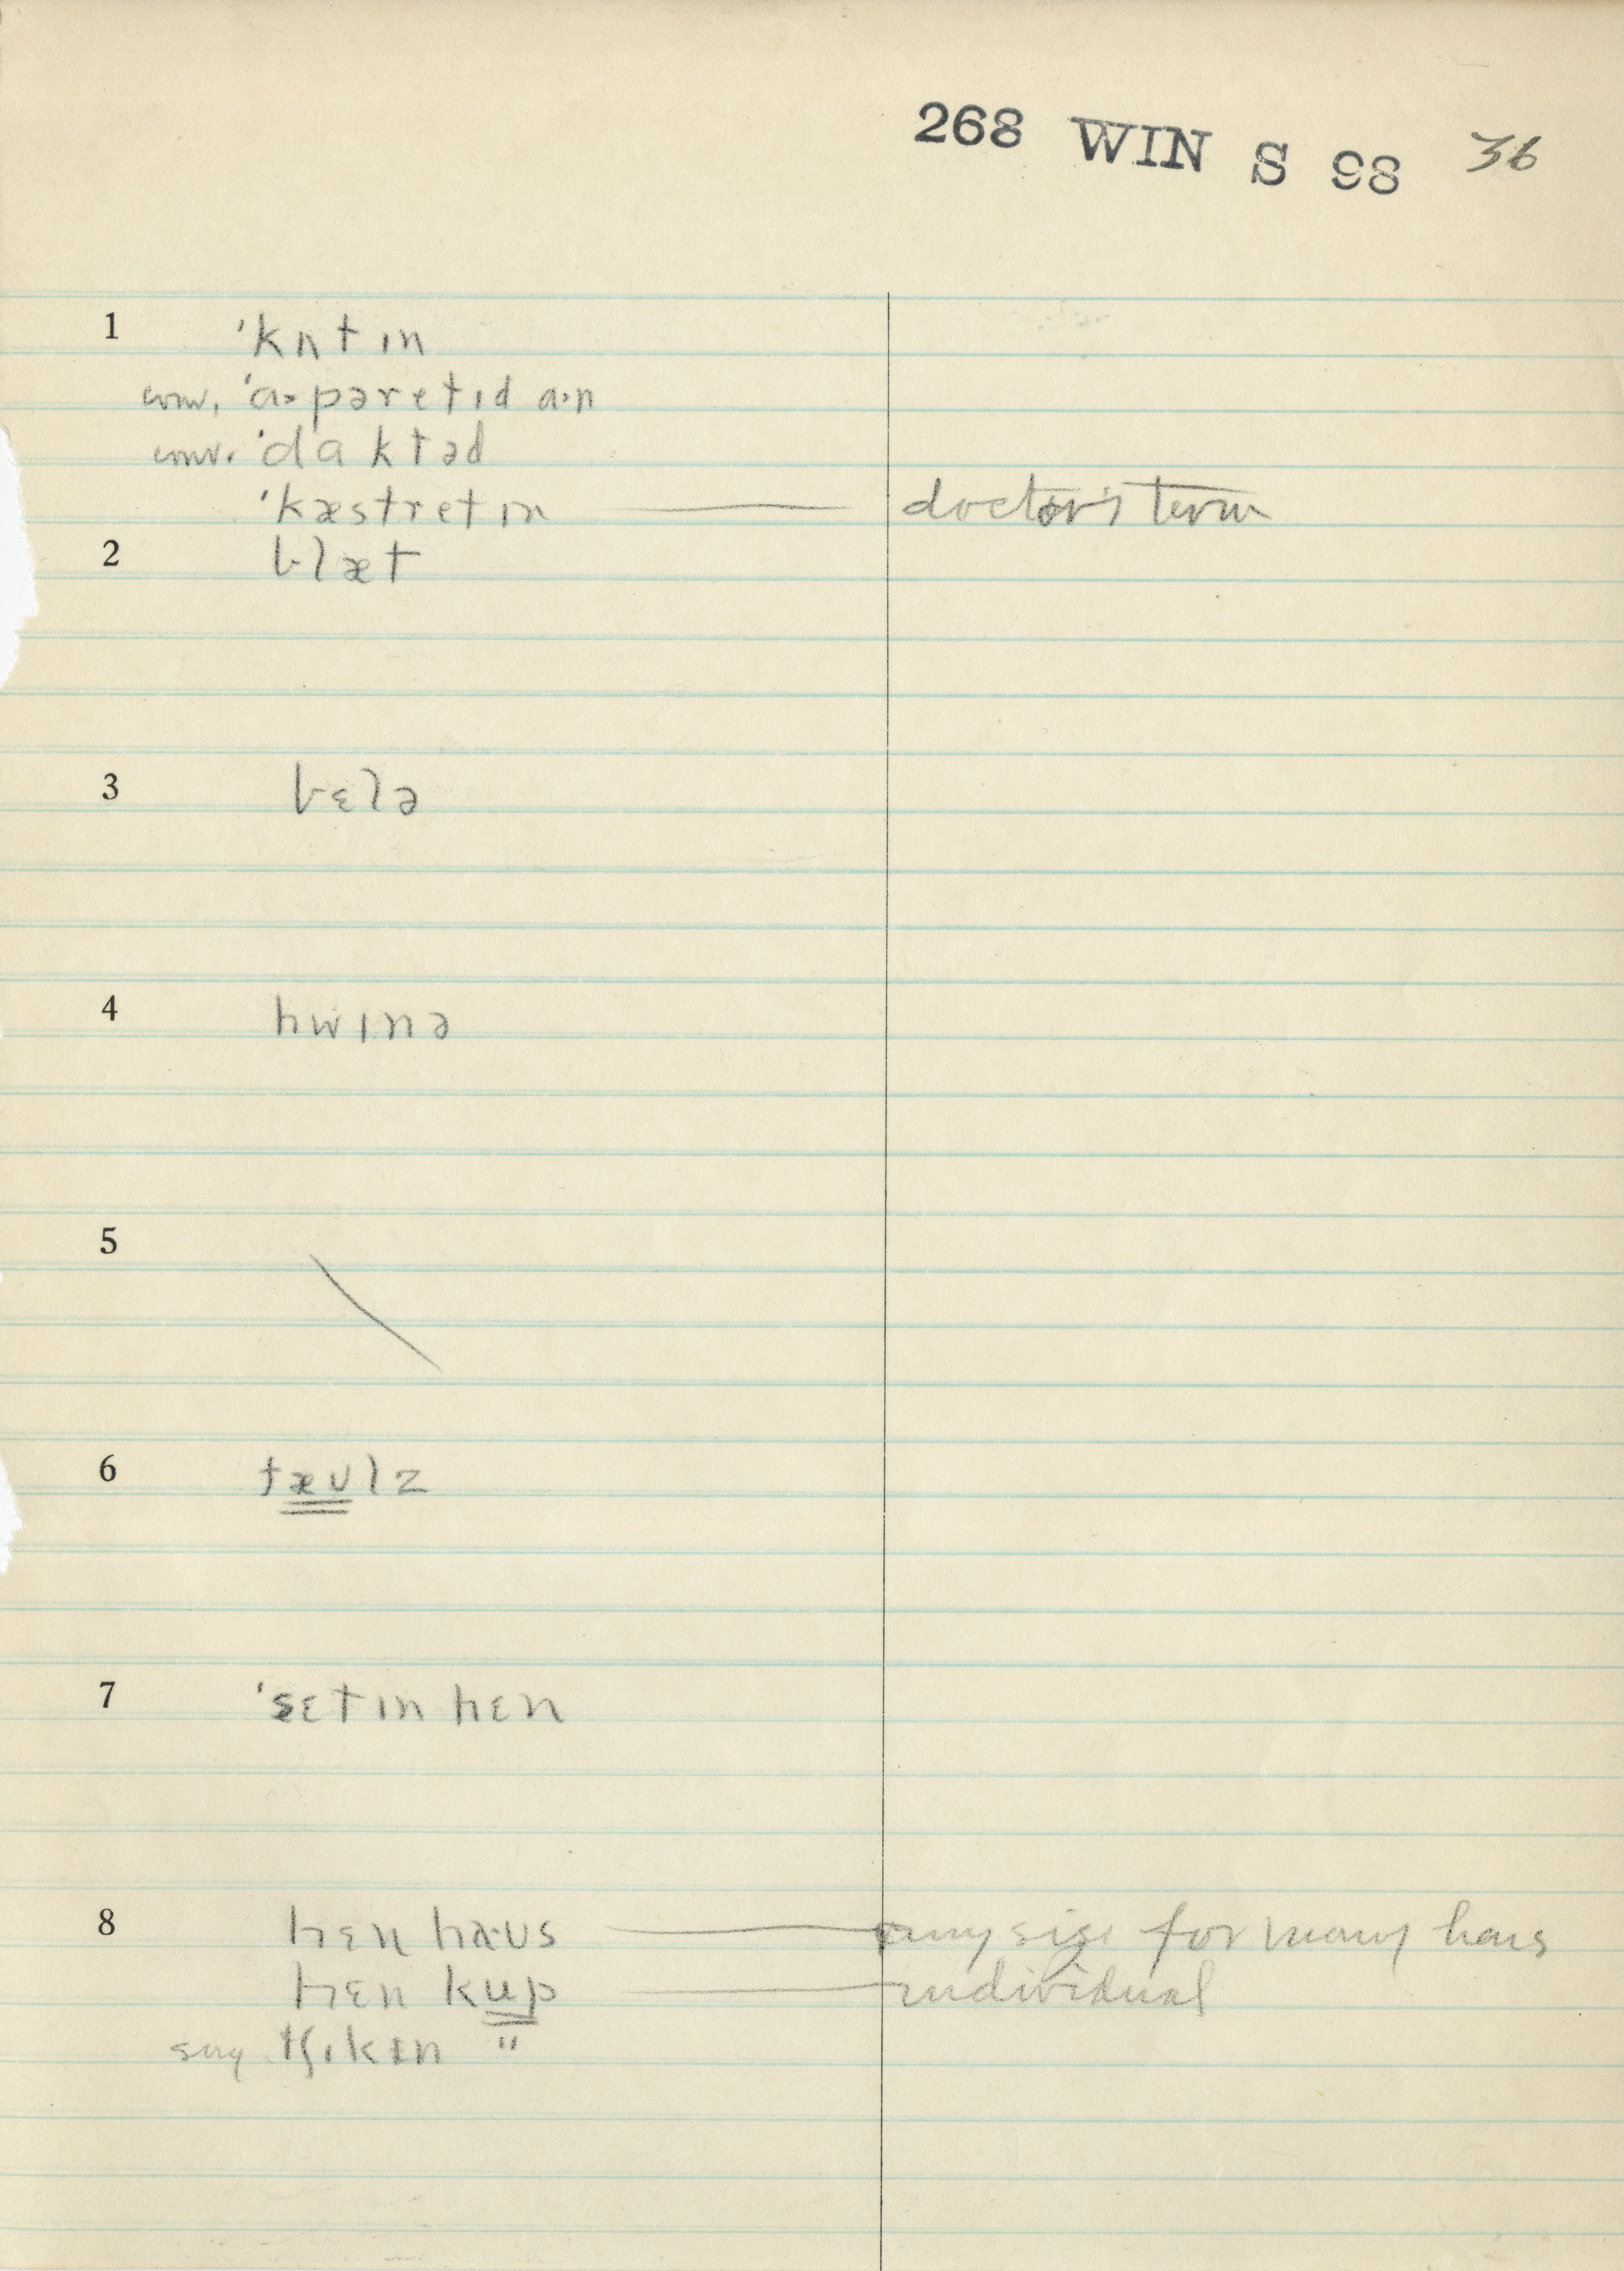 268 WIN S 98 36
1 ˈkʌtɪn
conv. ˈɑ·pəretɪd ɑ·n
conv. ˈdɑktəd
ˈkæstretɪn — doctor's term
2 blæt
3 bɛlə
4 hwɪnə
5
6 tæʊlz
7 ˈsɛtɪn hɛn
8 hɛn haʊs — any size for many hens
hɛn kup — individual
say tʃɪkɪn "